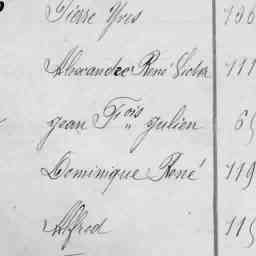 Pierre Yves
Alexandre René Victor 111
Jean Fois Julien
Dominique René 119
Alfred